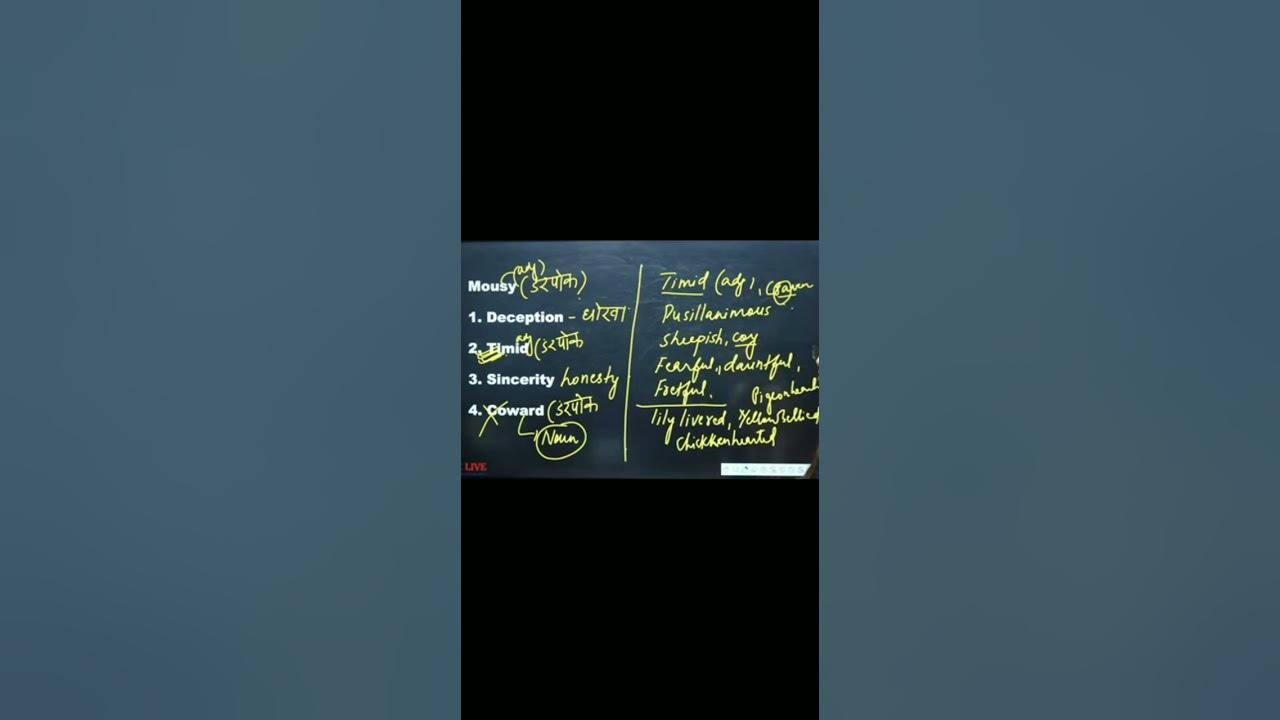 Mousy (adj) (डरपोक)
1. Deception - धोखा
2. Timid adj (डरपोक
3. Sincerity honesty
4. Coward (डरपोक
Noun
Timid (adj), Craven
Pusillanimous
Sheepish, coy
Fearful, dauntful,
Fretful.
Pigeonheart
lily livered, Yellow Bellied
Chickkenhearted
LIVE